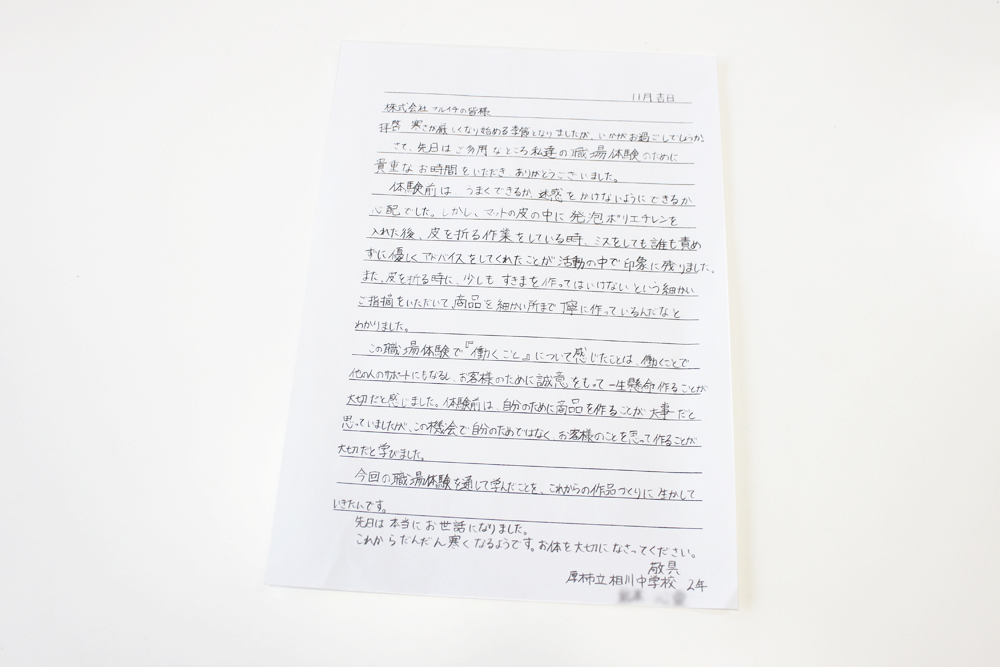 11月吉日
株式会社フルイチの皆様
拝啓 寒さが厳しくなり始める季節となりましたが、いかがお過ごしでしょうか。
さて、先日はご多用なところ私達の職場体験のために
貴重なお時間をいただき、ありがとうございました。
体験前は うまくできるか、迷惑をかけないようにできるか
心配でした。しかし、マットの皮の中に発泡ポリエチレンを
入れた後、皮を折る作業をしている時、ミスをしても誰も責め
ずに優しくアドバイスをしてくれたことが活動の中で印象に残りました。
また、皮を折る時に、少しもすきまを作ってはいけないという細かい
ご指摘をいただいて、商品を細かい所まで寧に作っているんだなと
わかりました。
この職場体験で『働くこと』について感じたことは、働くことで
他の人のサポートにもなるし、お客様のために誠意をもって一生懸命作ることが
大切だと感じました。体験前は、自分のために商品を作ることが大事だと
思っていましたが、この機会で自分のためではなく、お客様のことを思って作ることが
大切だと学びました。
今回の職場体験を通して学んだことを、これからの作品づくりに生かして
いきたいです。
先日は本当にお世話になりました。
これからだんだん寒くなるようです。お体を大切になさってください。
敬具
厚木市立相川中学校 2年